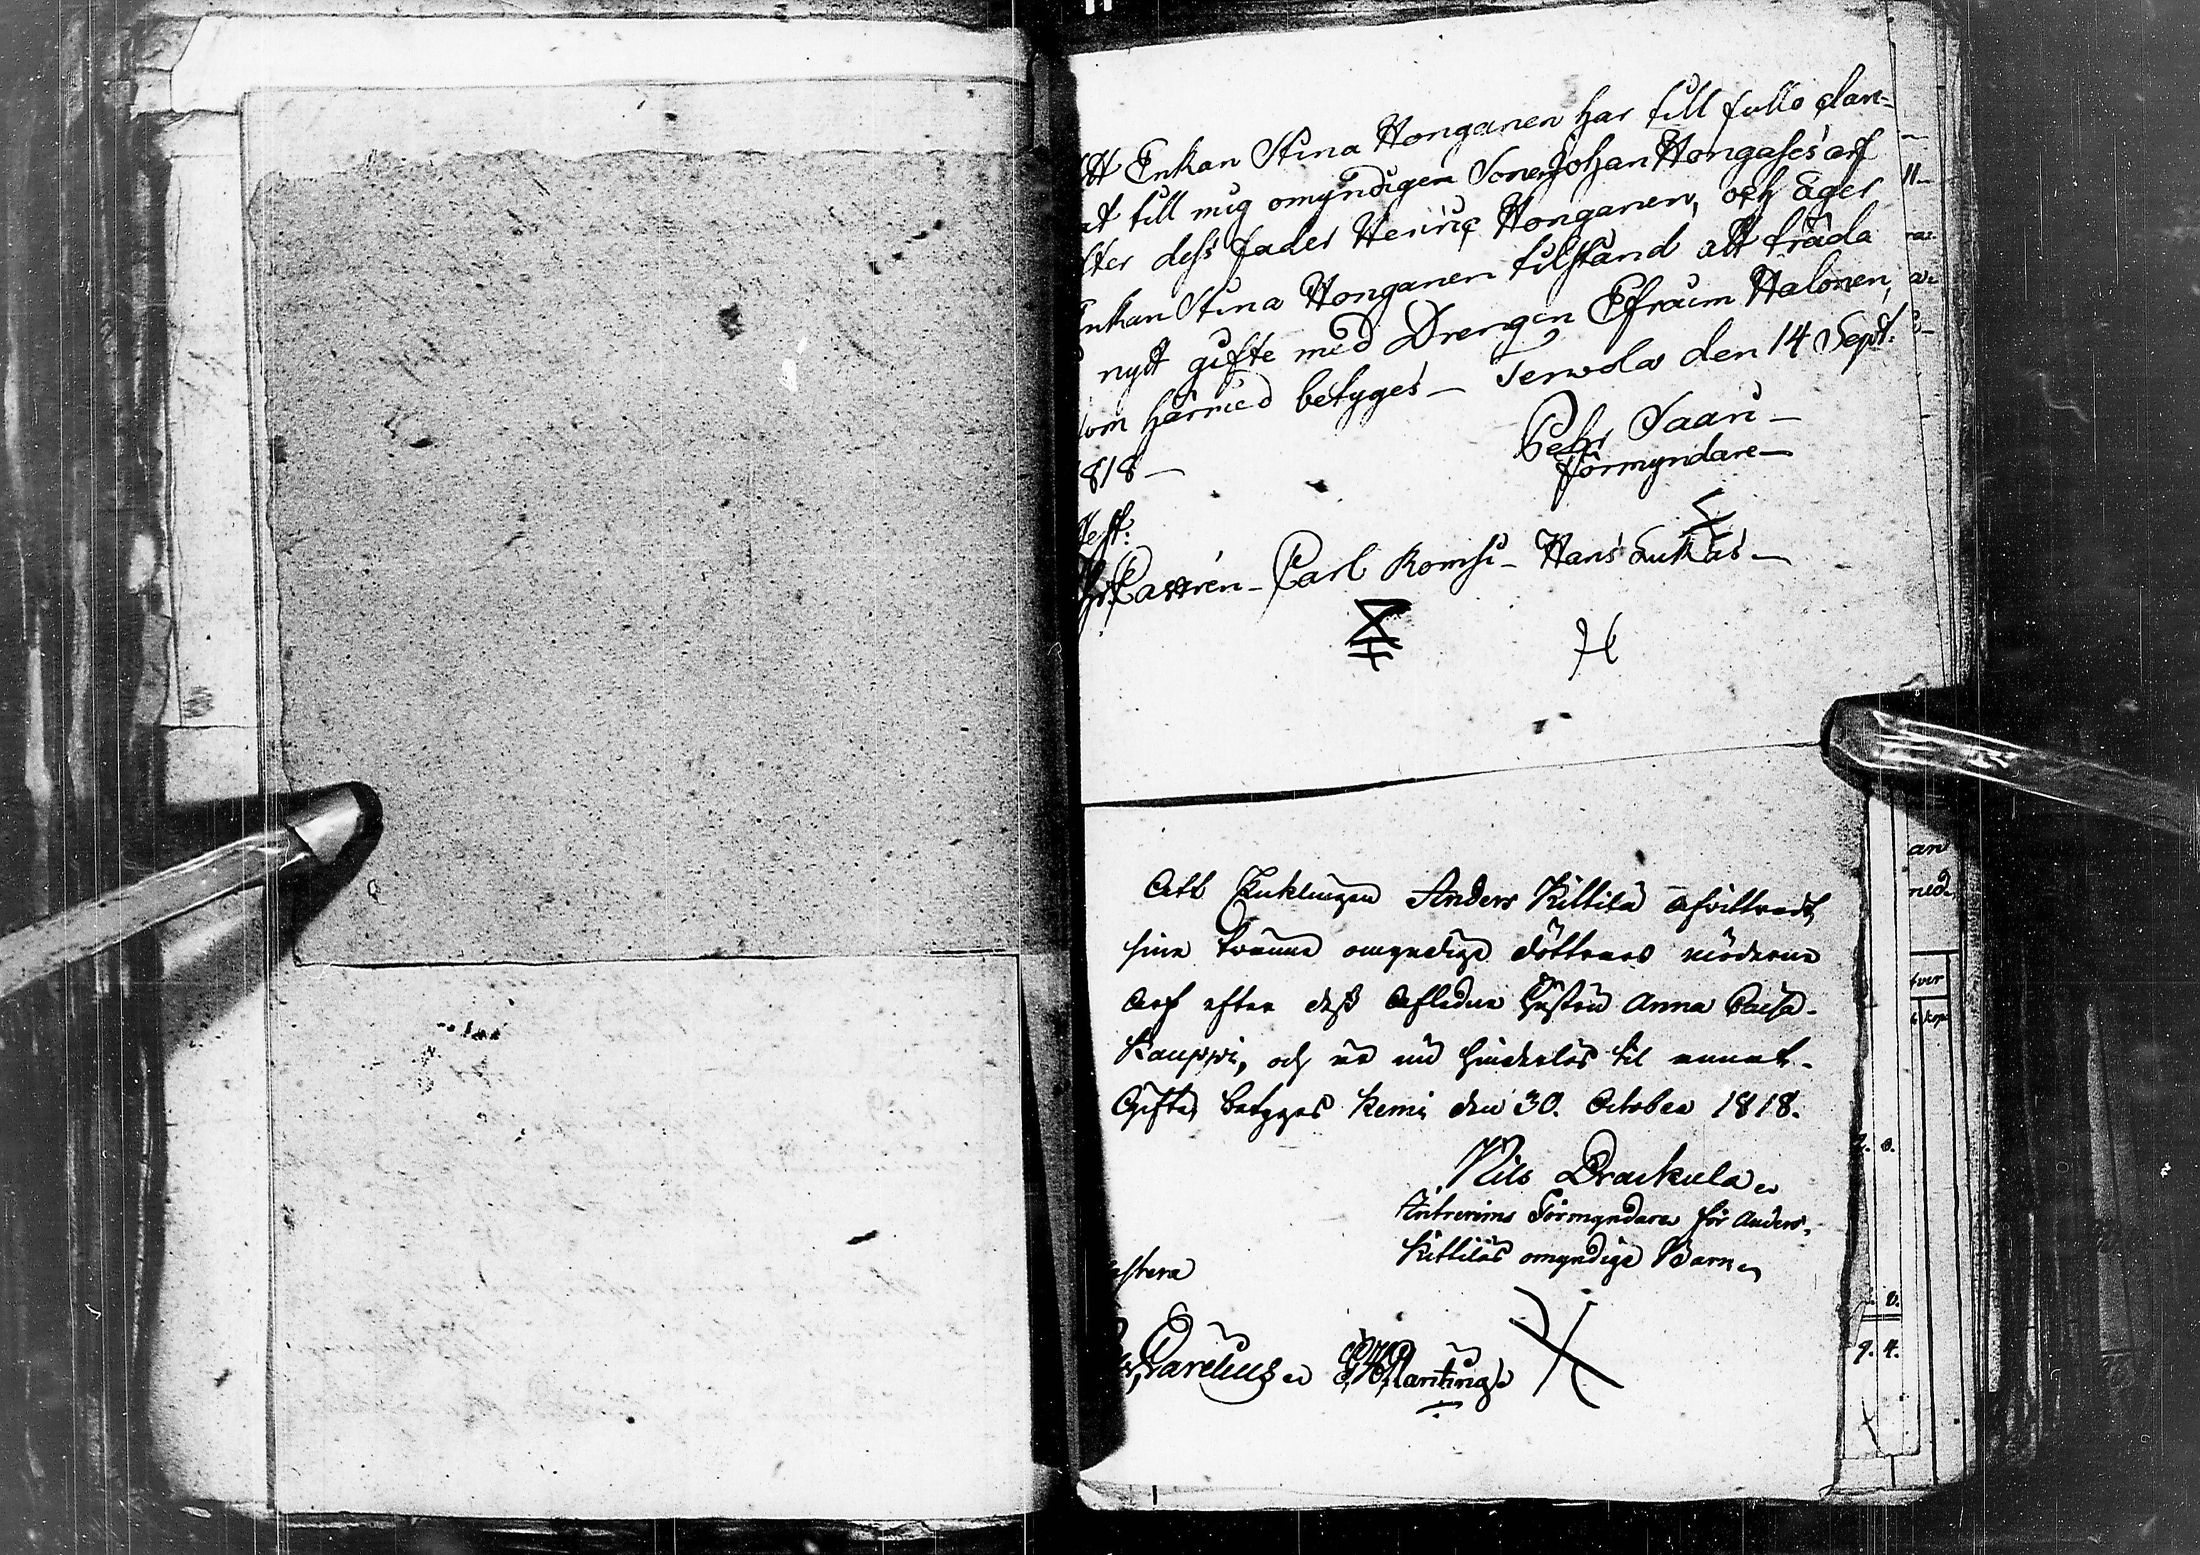 Att Enkan Stina Honganen har till fullo clare-
rat till mig omyndigen Sonen Johan Hongases arf
efter dess fader Henric Honganen, och äger
Enkan Stina Honganen tilstånd att träda
i nytt gifte med Drengen Efraim Halonen,
som härmed betyges – Terwola den 14 Sept.
1818 –
Pehr Saari –
förmyndare –
Test:
Castrén – Carl Romsi – Hans Lukas –
H
Att Enklingen Anders Kittilä afvittradt
sine tvänne omyndige döttrars möderne
Arf efter dess Afledne Hustru Anna Caisa
Kauppi, och är nu hinderlös til annat
Gifte, betyges Kemi den 30. October 1818.
Nils Drackula
Intrerims Förmyndare för Anders
Kittiläs omyndige Barn
Carelius
Planting
an
med
9. 4.